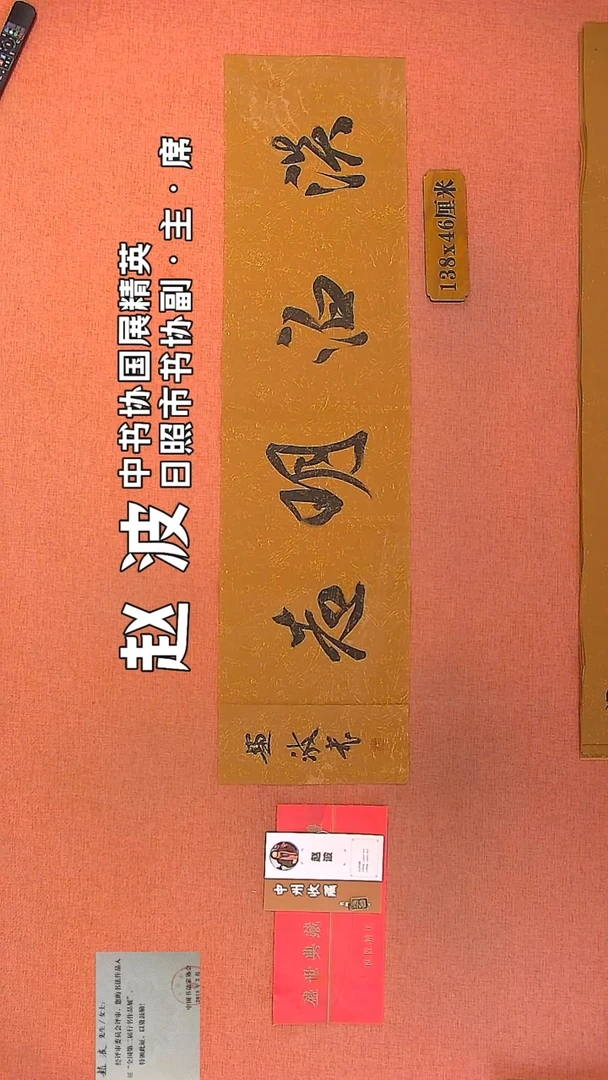 赵波
中书协国展精英
日照市书协副·主·席
淡泊明志
赵波书
138x46厘米
赵波
中州收藏
盛世典藏
赵波 先生/女士:
经评审委员会评审,您的书法作品入
展“全国第二届行书作品展”,
特颁此证,以资鼓励!
中国书法家协会